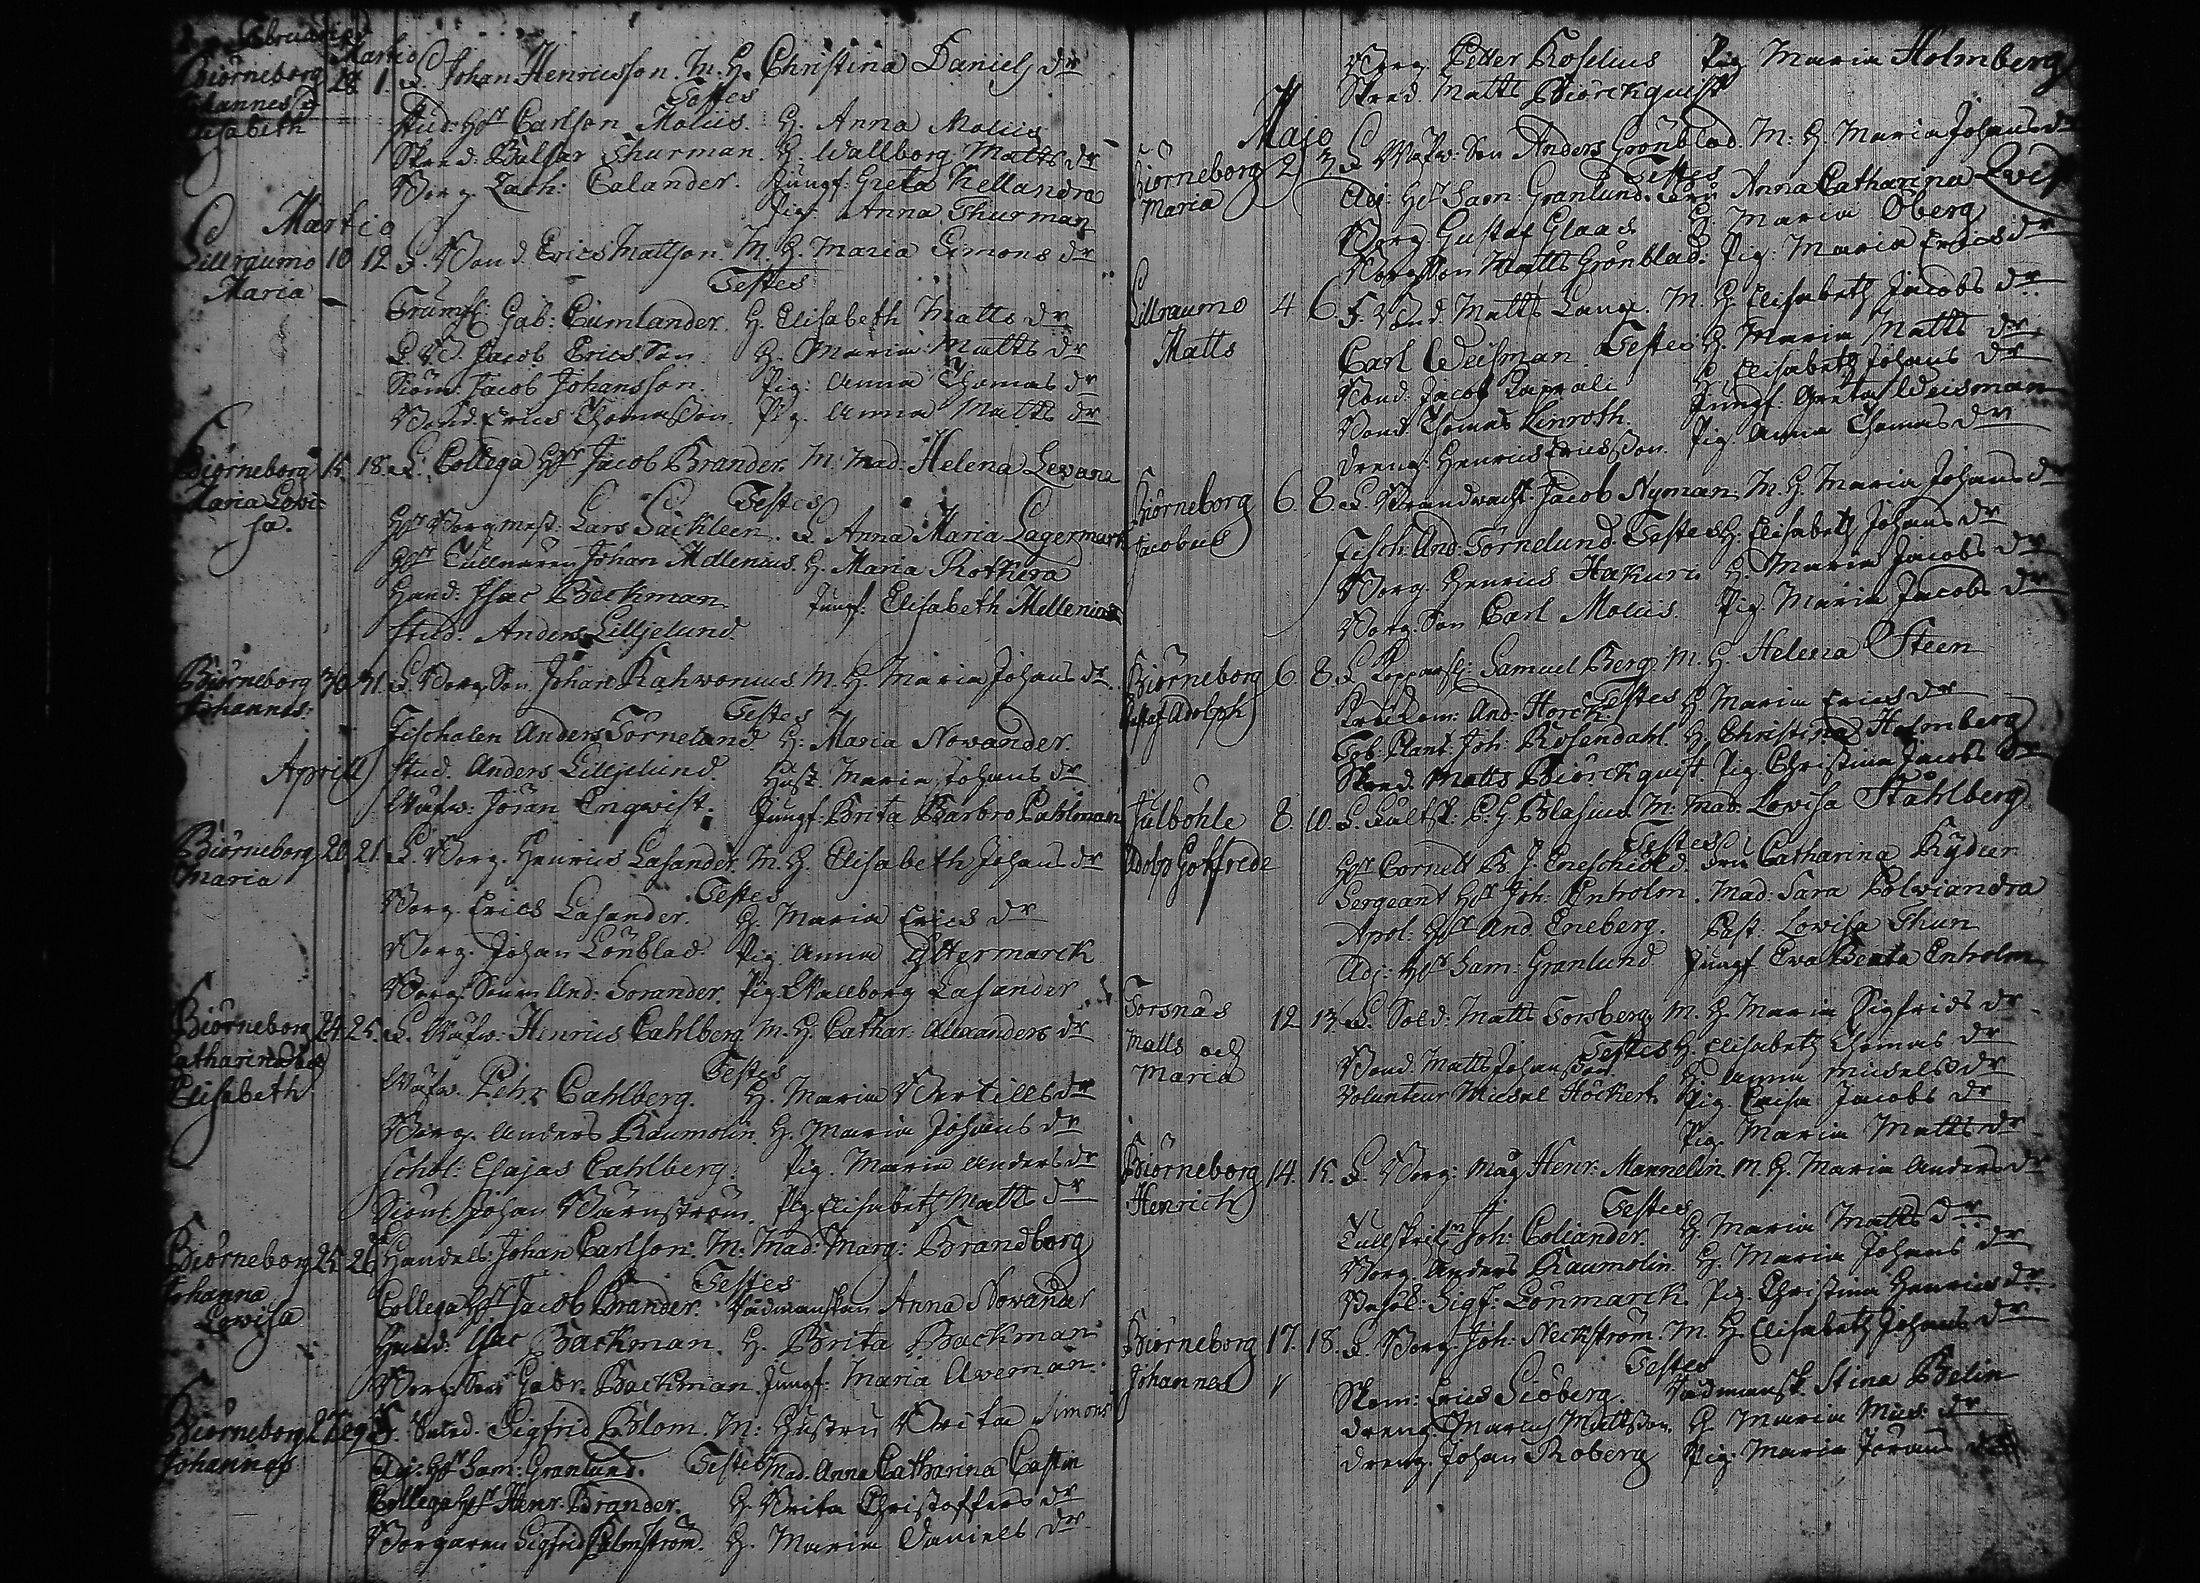 Februarius
Martio
Biörneborg 28 1. F. Johan Henricsson. M. H. Christina Daniels dr
Johannes &
Elisabeth
Testes
Stud: Hr Carlson Moliis. H. Anna Moliis
Skred. Balsar Thurman. H. Wallborg Matts dr
Borg. Zach: Calander. Jungf: Greta Kellandra
Pig. Anna Thurman
Martio
Lillraumo 10 12 F. Bond. Erics Mattson. M. H. Maria Simons dr
Maria
Testes
Trumsl. Gab: Cumlander. H. Elisabeth Matts dr
Jacob Erics Son H. Maria Matts dr
Jacob Johansson. Pig: Anna Thomas dr
Bond. Erics Thomasson. Pig. Anna Matts dr
Biörneborg 15. 18. F. Collega Hr Jacob Brander. M. Mad: Helena Levana
Maria Lovi-
sa.
Testes
Hr Borgmest: Lars Sackleen. F. Anna Maria Lagermarck
Hr Tullnären Johan Mellenius. H. Maria Rothera
Hand: Isac Beckman Jungf: Elisabeth Mellenia
Stud. Anders Lilljelund
Biörneborg 30 31. F. Borg. Son Johan Kahwonius. M. H. Maria Johans dr
Johannes.
Testes
Fischalen Anders Törnelund H. Maria Novander.
Aprill
Stud. Anders Lilljelund. Hust. Maria Johans dr
Wäfw: Jöran Engwist. Jungf: Brita Barbro Pahlman
Biörneborg 20 21. F. Borg. Henrics Lasander. M. H. Elisabeth Johans dr
Maria
Testes
Borg. Erics Lasander. H. Maria Erics dr
Borg. Johan Lönblad. Pig. Anna Yttermarck
Borg Sonen And: Sorander. Pig. Wallborg Lasander
Biörneborg 24. 25. F. Wäfw: Hinrics Cahlberg M. H. Cathar: Alexanders dr
Catharina &
Elisabeth
Testes
Wäfw. Pehr Cahlberg. H. Maria Bertills dr
Borg. Anders Raumolin. H. Maria Johans dr
Schol: Esajas Cahlberg: Pig. Maria Anders dr
Johan Bärnström. Pig. Elisabeth Matts dr
Biörneborg 25 26 F. Handels: Johan Carlson: M: Mad: Marg: Brandborg
Johanna
Lovisa
Testes
Collega Hr Jacob Brander. Rådmanskan Anna Novander
Hand: Isac Backman. H. Brita Backman
Borg. Son Gabr. Backman. Jungf: Maria Aveman.
Biörneborg 27 29 F. Sigfrid Blom. M: Hustru Brita Simons
Johannes
Adj: Hr Sam: Granlund. Testes Mad. Anna Catharina Castin
Collega Hr Henr. Brander. H. Brita Christoffers dr
Borgaren Sigfrid Palmström. H. Maria Daniels dr
Borg. Petter Koselius Pig Maria Holmberg
Skred. Matts Biörckquist
Majo
Biörneborg 2 3 F. Wäfw: Son Anders Grönblad. M: H. Maria Johans dr
Maria
Testes
Adj: Hr Sam: Granlund. Fru Anna Catharina Qvist
Borg. Gustaf Glaad H. Maria Öberg
Borg Son Matts Grönblad. Pig: Maria Erics dr
Lillraumo 4 6 F. Bond. Matts Lang. M. H. Elisabeth Jacobs dr
Matts
Carl Weisman Testes H. Maria Matts dr
Bond. Jacob H. Elisabeth Johans dr
Bond Thomas Linroth. Jungf. Greta Weisman
Dreng. Henrics Ericsson Pig. Anna Thomas dr
Biörneborg 6. 8. F. Brandwacht. Jacob Nyman. M. H. Maria Johans dr
Jacobus
Fisch: And: Törnelund. Testes H. Elisabeth Johans dr
Borg. Henrics Hakuri. H. Maria Jacobs dr
Borg. Son Carl Moliis. Pig. Maria Jacobs dr
Biörneborg 6. 8. F. Kopparsl: Samuel Berg. M. H. Helena Steen
Gustaf Adolph
Testes
And: Horck. H Maria Erics dr
Tob: Plant. Joh: Rosendahl. H. Christina Holmberg
Skred. Matts Biörckquist. Pig. Christina Jacobs dr
Julböhle 8. 10. F. C. G. Blasius. M: Mad. Lovisa Ståhlberg
Adolp Gotfrede
Testes
Hr Cornett B. J. Eneschiöld. Fru Catharina Kydren
Sergeant Hr Joh: Enholm. Mad: Sara Polviandra
Apol: Hr And. Eneberg. Lovisa Thun
Adj: Hr Sam: Granlund Jungf. Eva Beata Enholm
Torsnäs 12 13 F. Sold: Matts Torsberg M. H. Maria Sigfrids dr
Matts och
Maria
Bond. Matts Johansson Testes H. Elisabeth Thomas dr
Volunteur Michel Höckert. H. Anna Michels dr
Pig. Caisa Jacobs dr
Pig. Maria Matts dr
Biörneborg 14. 15. F. Borg: Mag. Henr: Mannelin M. H. Maria Anders dr
Henrich
Testes
Tullskrif. Joh: Coliander. H. Maria Matts dr
Borg. Anders Raumolin H. Maria Johans dr
Sigf: Lönmarck. Pig. Christina Henrics dr
Biörneborg 17. 18. F. Borg. Joh: Neckström. M. H. Elisabeth Johans dr
Johannes
Testes
Skom: Erics Siöberg. Rådmansk. Stina Belin
Dreng. Marcus Mattsson. H Maria Mich: dr
Dreng. Johan Roberg Pig: Maria Jörans dr